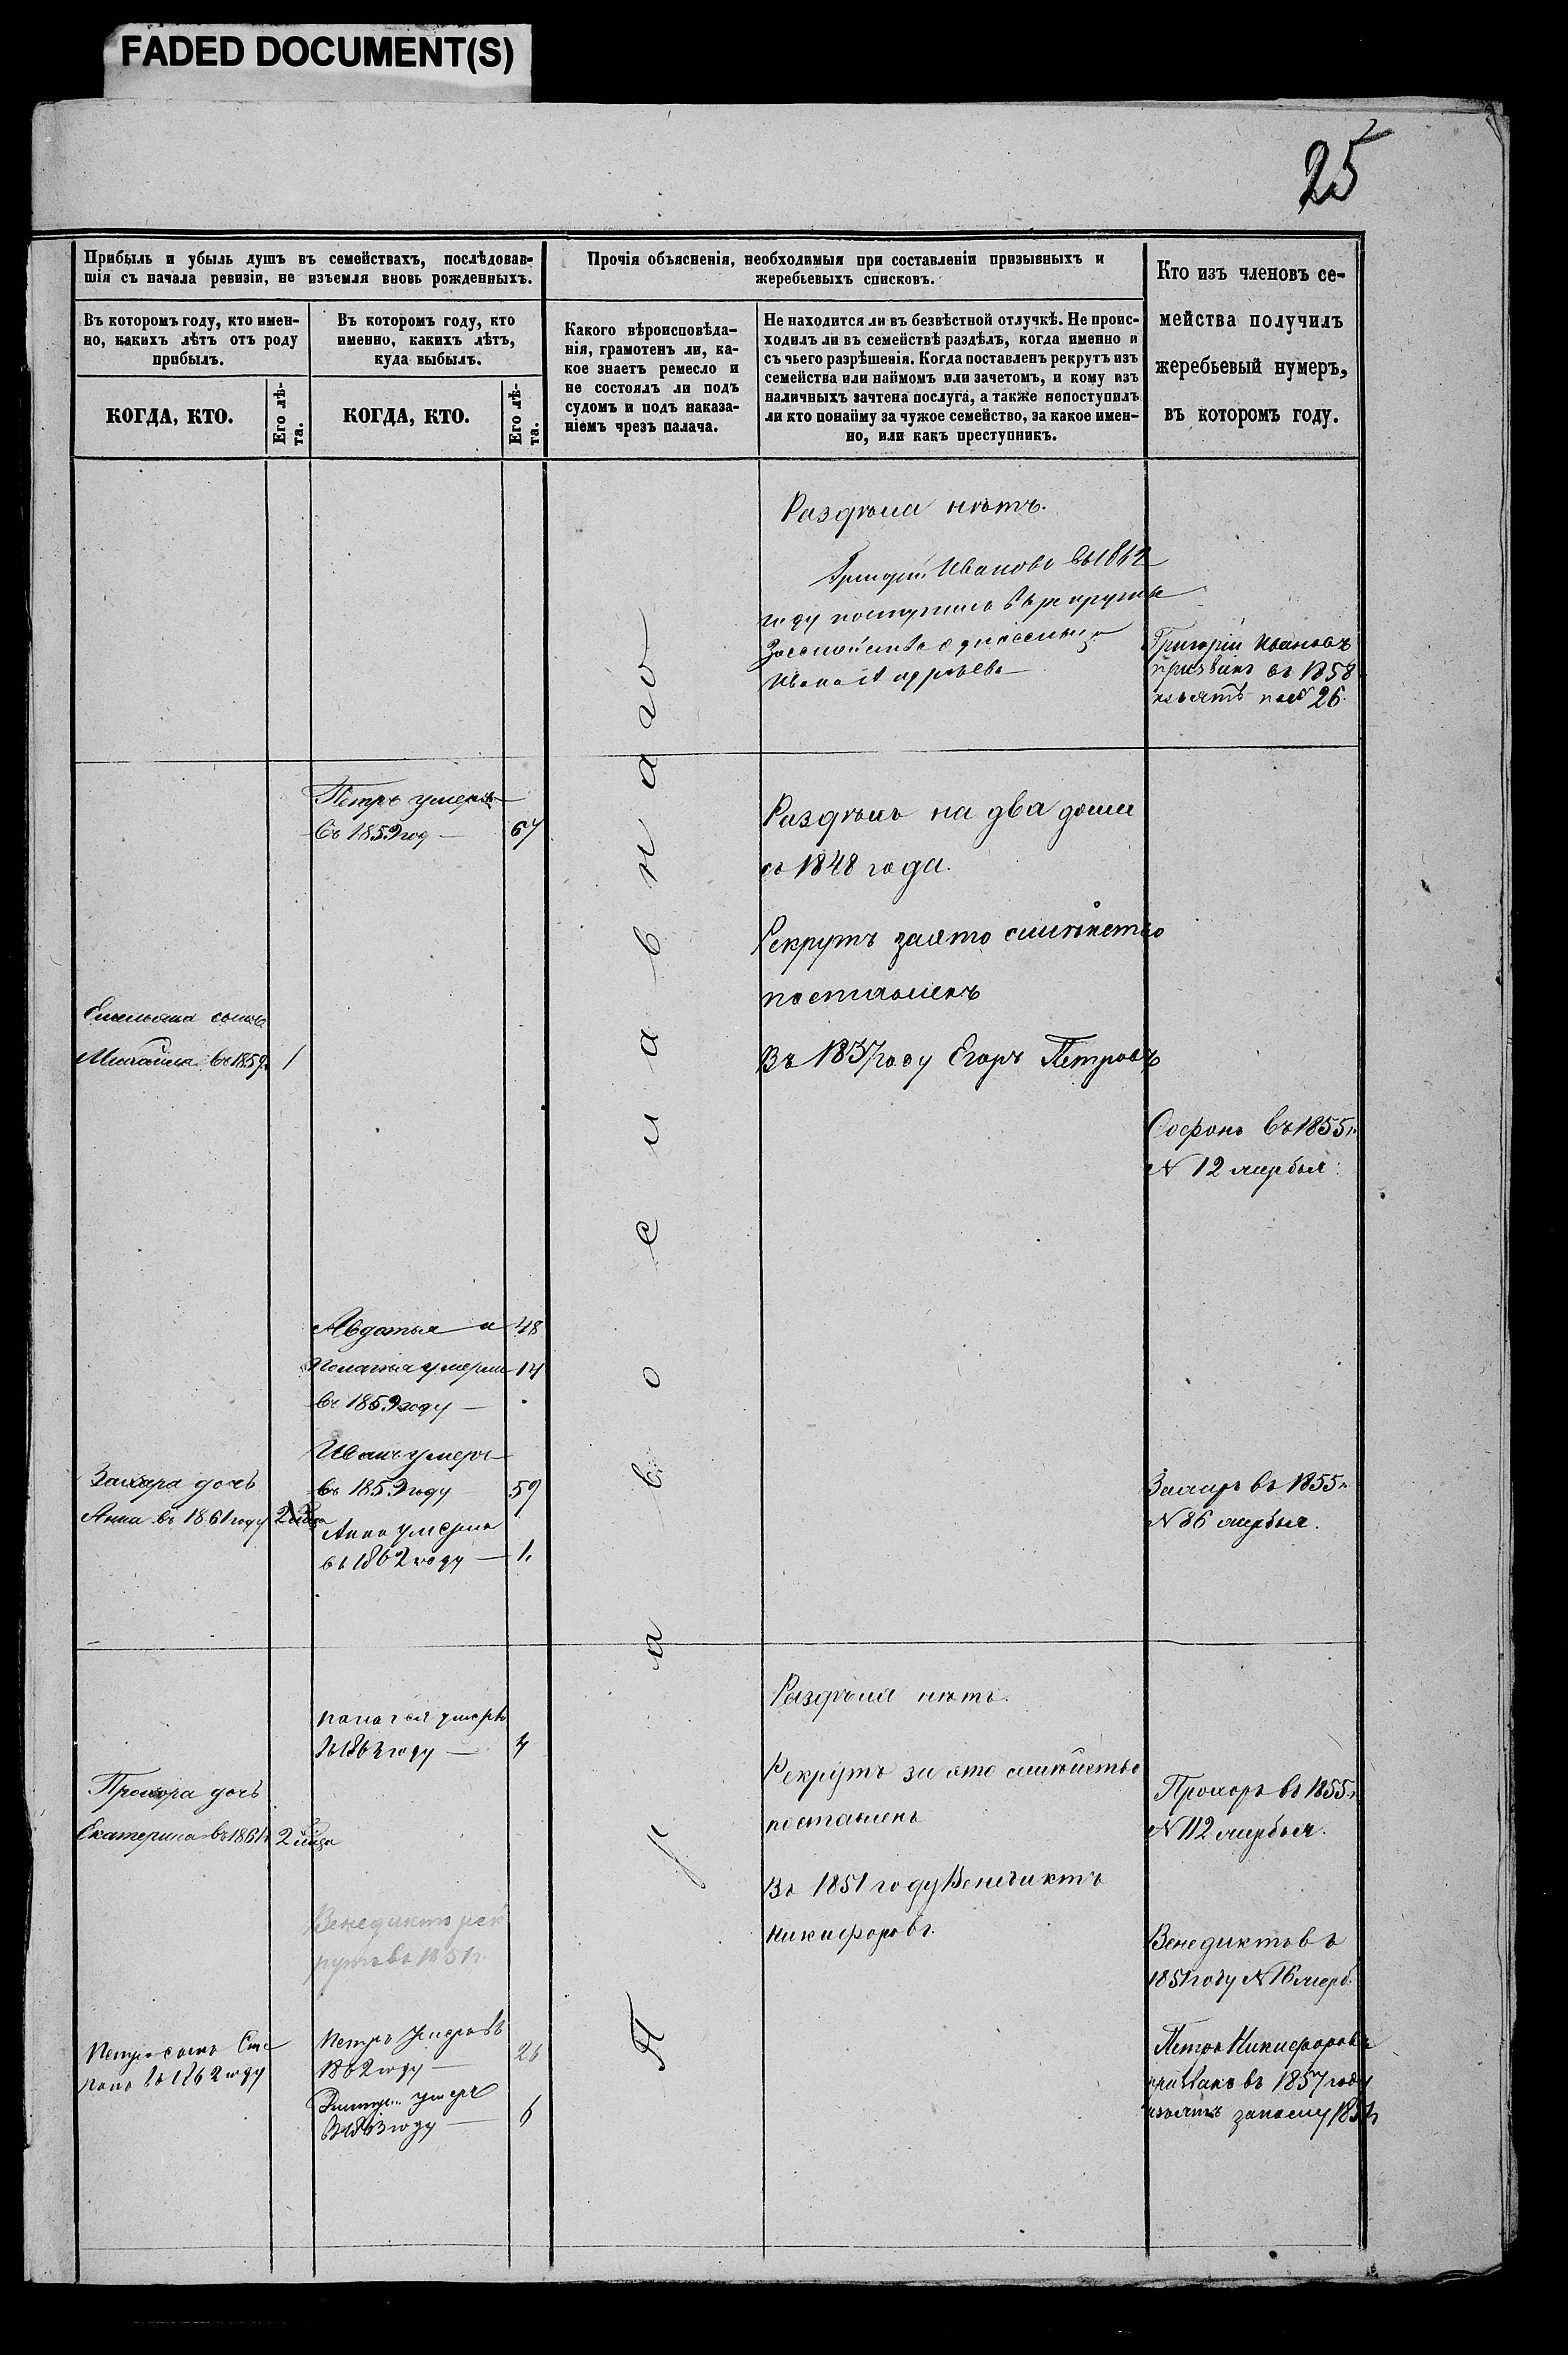 FADED DOCUMENT(S)
25
Прибыль и убыль душъ въ семействахъ, послѣдовав-
шія съ начала ревизіи, не изъемля вновь рожденныхъ.
Въ которомъ году, кто имен-
но, какихъ лѣтъ отъ роду
прибылъ.
КОГДА, КТО.
Его лѣ-
та.
Въ которомъ году, кто
именно, какихъ лѣтъ,
куда выбылъ.
КОГДА, КТО.
Его лѣ-
та.
Прочія объясненія, необходимыя при составленіи призывныхъ и
жеребьевыхъ списковъ.
Какого вѣроисповѣда-
нія, грамотенъ ли, ка-
кое знаетъ ремесло и
не состоялъ ли подъ
судомъ и подъ наказа-
ніемъ чрезъ палача.
Не находится ли въ безвѣстной отлучкѣ. Не проис-
ходилъ ли въ семействѣ раздѣлъ, когда именно и
съ чьего разрѣшенія. Когда поставленъ рекрутъ изъ
семейства или наймомъ или зачетомъ, и кому изъ
наличныхъ зачтена послуга, а также непоступилъ
ли кто понайму за чужое семейство, за какое имен-
но, или какъ преступникъ.
Кто изъ членовъ се-
мейства получилъ
жеребьевый нумеръ,
въ которомъ году.
Православнаго
Раздѣла нѣтъ.
Григорій Ивановъ въ 1862
году поступилъ въ рекруты
Ивана
Григорій Ивановъ
призванъ въ 1858
изъятъ 26.
Петръ умеръ
въ 1859 год 67
Раздѣлъ на два дома
съ 1848 года.
Рекрутъ за это семейство
поставленъ
Въ 1837 году Егоръ Петровъ
Емельяна сынъ
Михайла въ 1859 1
Софронъ въ 1855 г.
N 12 жербья
Авдотья и 48
Пелагия умерли 14
въ 1859 году
Иванъ умеръ
въ 1859 году 59
Захара дочь
Анна въ 1861 году
Анна умерла
въ 1862 году 1.
Захаръ въ 1855 г
N 86 жербья.
Раздѣла нѣтъ.
умерла
году 4
Рекрутъ за это семейство
поставленъ
Прохора дочь
Екатерина въ 1861
Прохоръ въ 1855 г.
N 112 жербья.
Въ 1851 году Венедиктъ
Никифоровъ.
Венедиктъ рек
рутъ въ 1851 г.
Венедиктъ въ
1851 году N 16 жерб.
Петра сынъ Сте
панъ въ 1862 году
Петръ умеръ въ
1862 году 26
умеръ
въ 1863 году 6
Петръ Никифоровъ
призванъ въ 1857 году
изъятъ